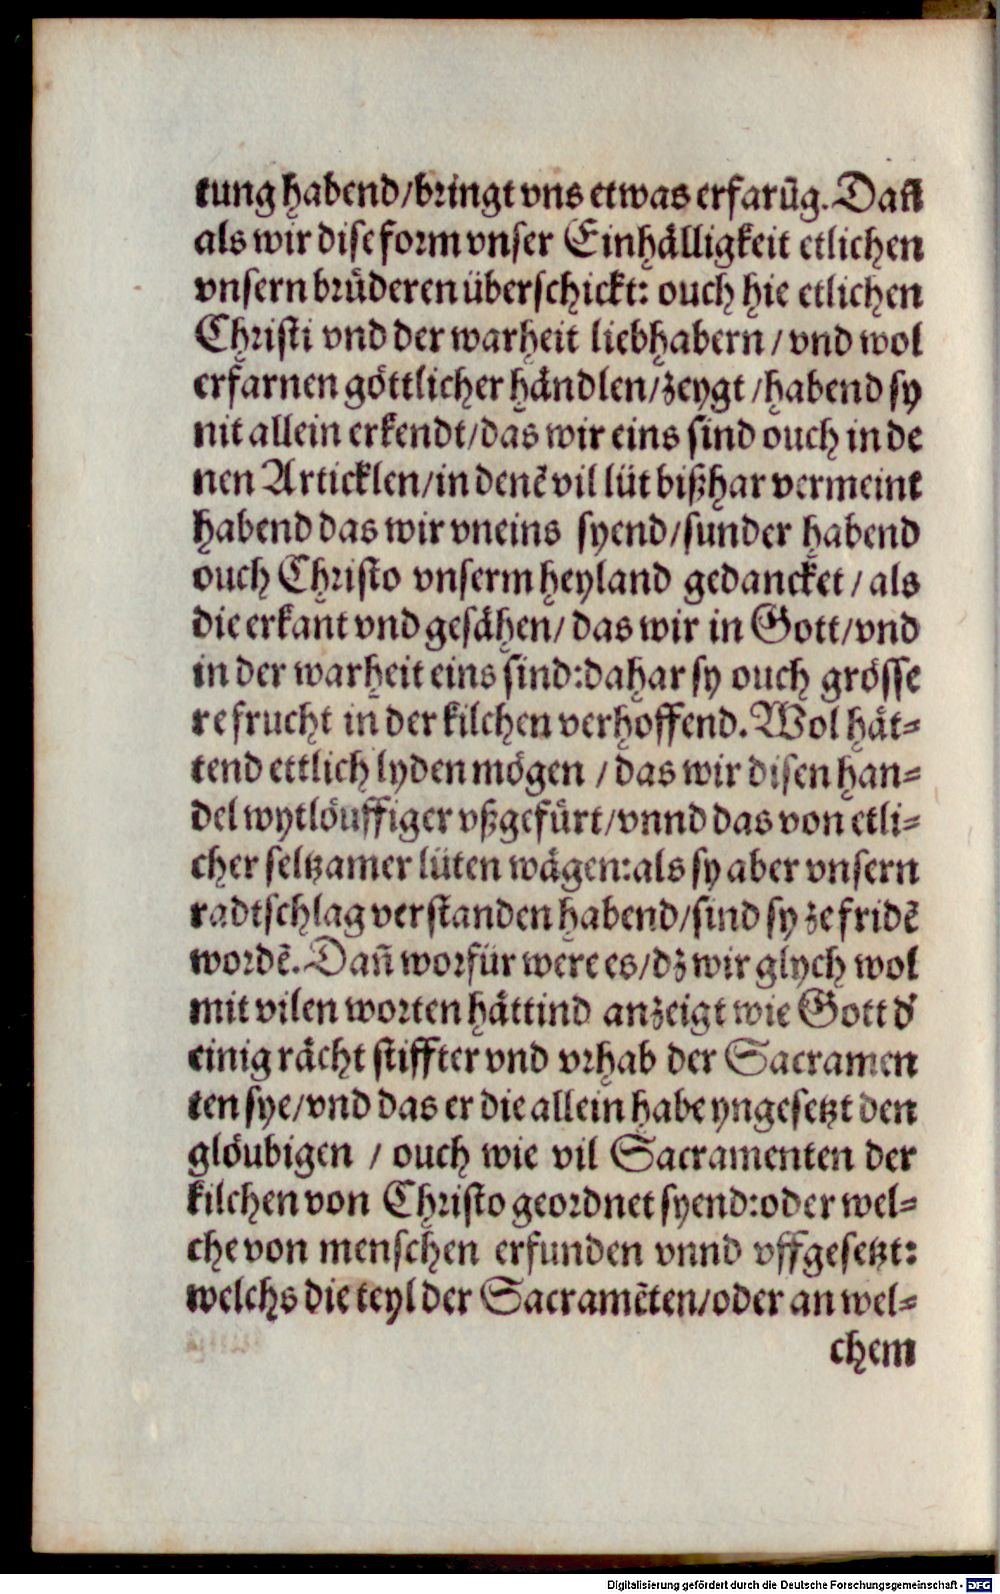 tung habend/bringt vns etwas erfarūg. Dañ
als wir dise form vnser Einhålligkeit etlichen
vnsern brůderen überschickt: ouch hie etlichen
Christi vnd der warheit liebhabern / vnd wol
erfarnen göttlicher håndlen/zeygt /habend sy
nit allein erkendt/das wir eins sind ouch in de
nen Articklen/in denē vil lüt bißhar vermeint
habend das wir vneins syend/sunder habend
ouch Christo vnserm heyland gedancket / als
die erkant vnd gesåhen/ das wir in Gott/vnd
in der warheit eins sind:dahar sy ouch grösse
re frucht in der kilchen verhoffend. Wol håt-
tend ettlich lyden mögen / das wir disen han-
del wytlöuffiger vßgefürt/vnnd das von etli-
cher seltzamer lüten wågen:als sy aber vnsern
radtschlag verstanden habend/sind sy ze fridē
wordē. Dañ worfür were es/dz wir glych wol
mit vilen worten håttind anzeigt wie Gott d'
einig råcht stiffter vnd vrhab der Sacramen
ten sye/vnd das er die allein habe yngesetzt den
glöubigen / ouch wie vil Sacramenten der
kilchen von Christo geordnet syend:oder wel-
che von menschen erfunden vnnd vffgesetzt:
welchs die teyl der Sacramēten/oder an wel-
chem
Digitalisierung gefördert durch die Deutsche Forschungsgemeinschaft - DFG